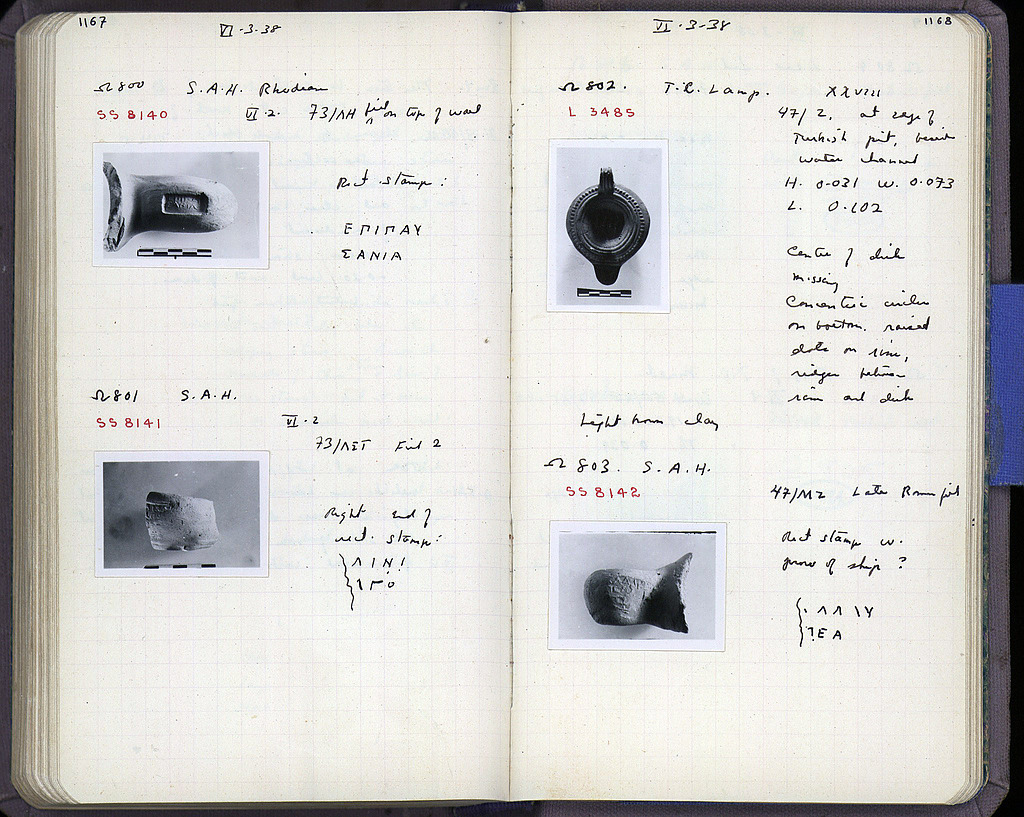 1167
VI·3·38
Ω 800 S.A.H. Rhodian
SS 8140 VI·2· 73/ΛΗ fill on top of wall
Rect stamp:
ΕΠΙΠΑΥ
ΣΑΝΙΑ
Ω 801 S.A.H.
SS 8141 VI·2
73/ΛΣΤ Fill 2
Right end of
rect. stamp:
1168
VI·3·38
Ω 802. T.C. Lamp. XXVIII
L 3485 47/ 2, at edge of
Turkish pit, beside
water channel
H. 0.031 W. 0.073
L. 0.102
Centre of disk
missing
Concentric circles
on bottom. raised
dots on rim,
ridges between
rim and disk
Light brown clay
Ω 803. S.A.H.
SS 8142 47/ΜΖ Late Roman pit
Rect stamp w.
prow of ship?
?ΕΑ